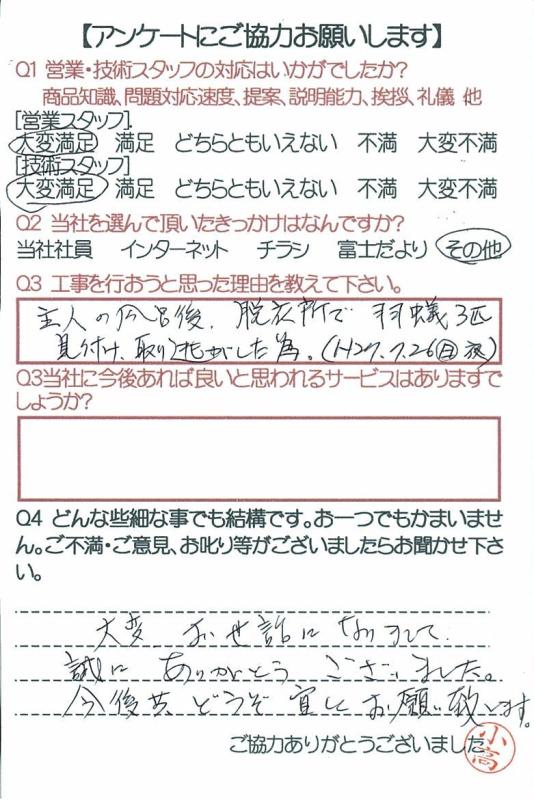 【アンケートにご協力お願いします】
Q1 営業・技術スタッフの対応はいかがでしたか?
商品知識、問題対応速度、提案、説明能力、挨拶、礼儀 他
[営業スタッフ]
大変満足 満足 どちらともいえない 不満 大変不満
[技術スタッフ]
大変満足 満足 どちらともいえない 不満 大変不満
Q2 当社を選んで頂いたきっかけはなんですか?
当社社員 インターネット チラシ 富士だより その他
Q3 工事を行おうと思った理由を教えて下さい。
主人の風呂後、脱衣所で 羽蟻3匹
見付け、取り逃がした為。(H27.7.26(日)夜)
Q3当社に今後あれば良いと思われるサービスはありますで
しょうか?
Q4 どんな些細な事でも結構です。お一つでもかまいませ
ん。ご不満・ご意見、お叱り等がございましたらお聞かせ下さ
い。
大変 お世話になりまして、
誠に ありがとう ございました。
今後共、どうぞ 宜しく お願い致します。
ご協力ありがとうございました
小高